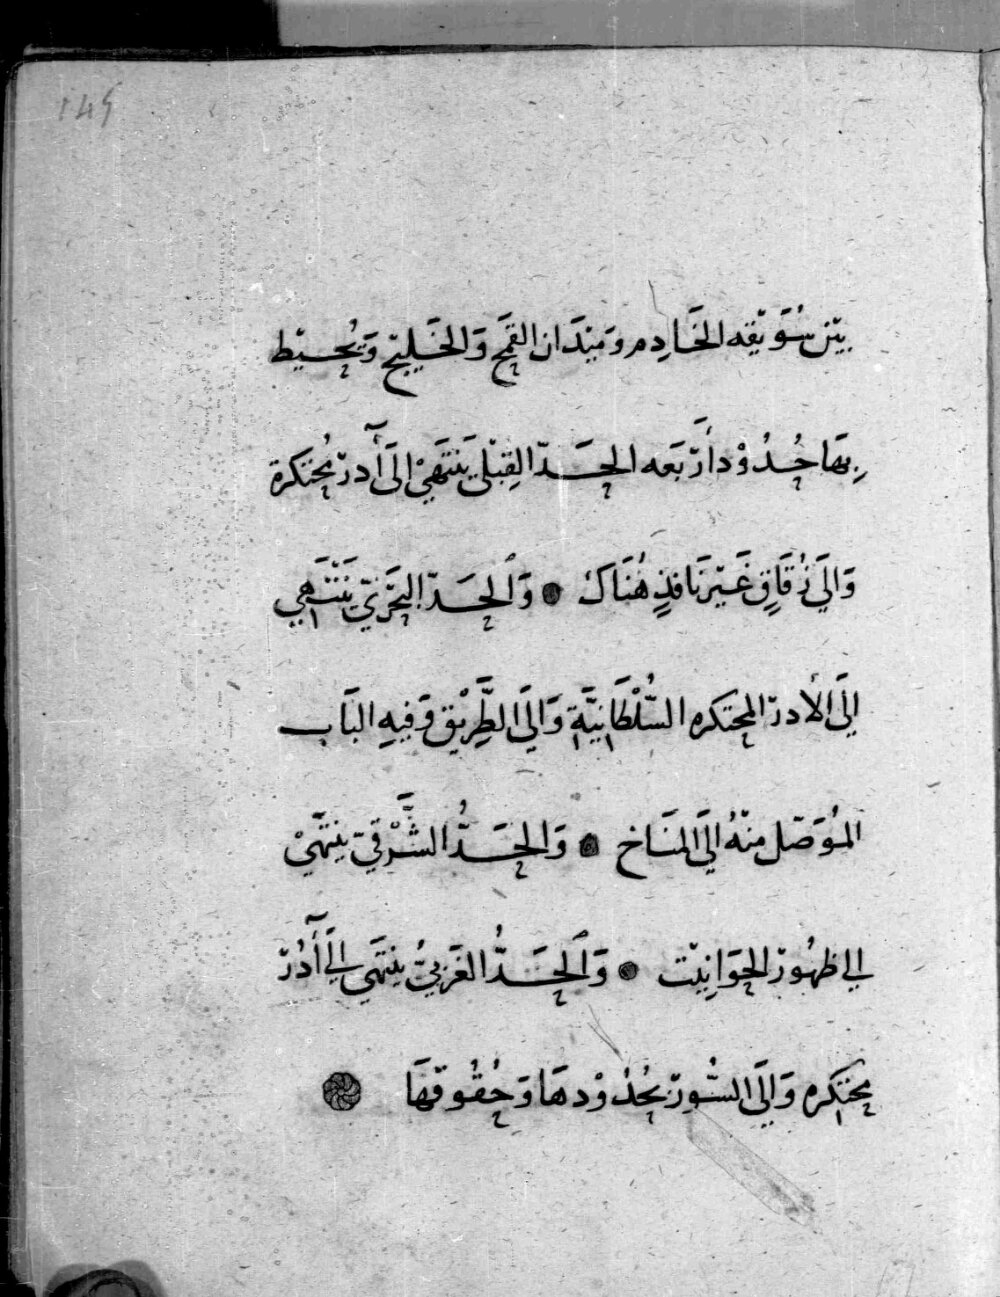 149
بَيْن سُوَيْقِه الخَادِم وَمَيْدَان القَمْحِ وَالخَلِيْجِ وَيُحِيْط
بِهَا حُدُوْد أَرْبَعه الحَدّ القِبْلى يَنتَهَيْ الىَ آدر محتكرة
وَالَي زُقَاقٍ غَيْر نَافذٍ هُنَاكَ ۞ وَالحَدّ البَحَرْيّ يَنْتَهِي
الَى الأدرّ المحتكره السُّلْطَانِيَّةِ وَالَي الطَّرِيْق وَفيهِ البَاب
المُوَصّل منْهُ الَي المنَاخ ۞ وَالحَدُّ الشَّرْقيّ يَنتَهَيْ
الي ظهُور الحَوَانِيْت ۞ وَالحَدُّ الغَرَبيُّ يَنتَهَي الَي أَدُرّ
محتكره وَالَي السُّورّ بحُدُوْدهَا وَحُقُوقهَا ۞